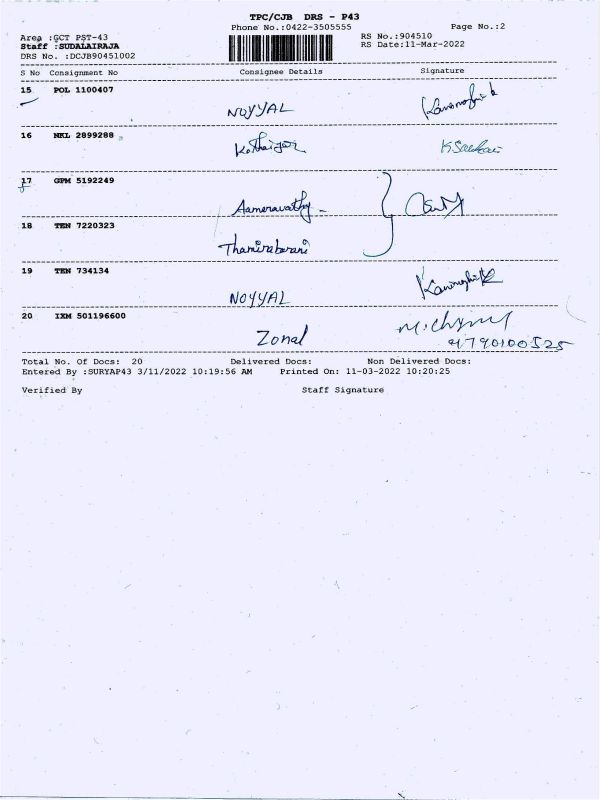 TPC/CJB DRS - P43
Phone No.:0422-3505555 Page No.:2
Area :GCT PST-43 RS No.:904510
Staff :SUDALAIRAJA RS Date:11-Mar-2022
DRS No. :DCJB90451002
S No Consignment No Consignee Details Signature
15 POL 1100407
NOYYAL
16 NKL 2899288
17 GPM 5192249
Aameravathy
18 TEN 7220323
Thamiraberani
19 TEN 734134
NOYYAL
20 IXM 501196600
Zonal
Total No. Of Docs: 20 Delivered Docs: Non Delivered Docs:
Entered By :SURYAP43 3/11/2022 10:19:56 AM Printed On: 11-03-2022 10:20:25
Verified By Staff Signature